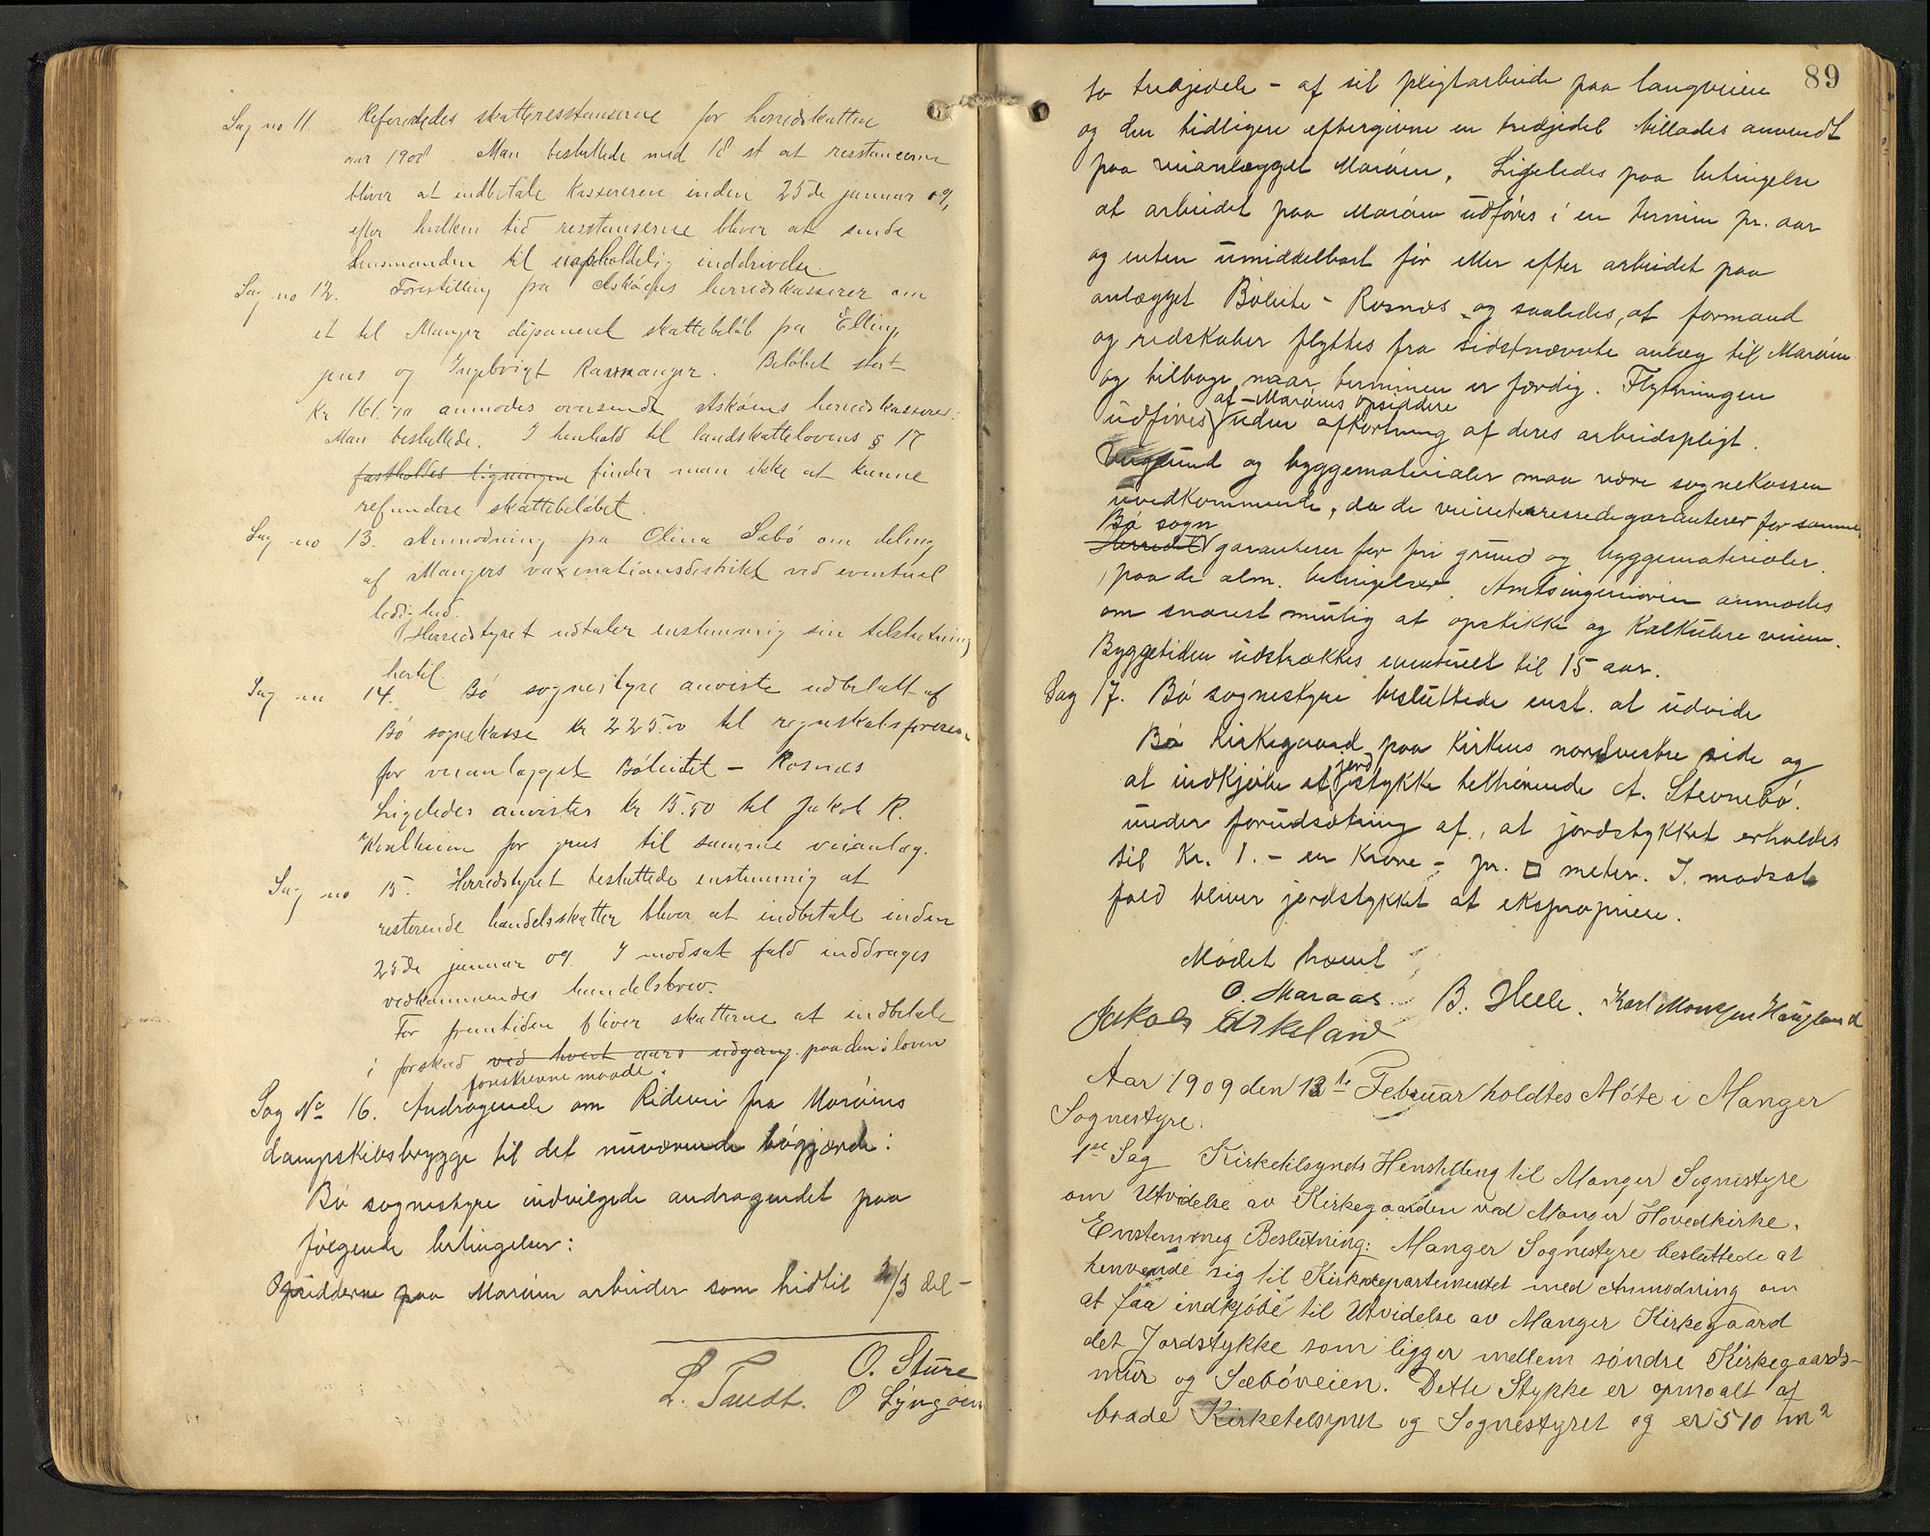 Sag no 11. Refereredes skatteresstanserne for herredskatten
aar 1908. Man besluttede med 18 st at resstancerne
bliver at indbetale Kassereren inden 25de januar 09,
efter hvilken tid resstanserne bliver at sende
Lensmanden til uopholdelig inddrivelse.
Sag no 12. Forestilling fra Askøens herredskasserer om
et til Manger disponeret skattebeløb fra Elling
jens og Ingebrigt Rasmanger. Beløbet stort
Kr 161.70 anmodes oversendt Askøens herredskasserer.
Man besluttede. I henhold til landskattelovens § 17
fastholdes ligningen finder man ikke at kunne
refundere skattebeløbet.
Sag no 13. Anmodning fra Olina Sæbö om deling
af Mangers vaxinationsdistrikt ved eventuel
ledighed.
Herredstyret udtaler enstemmig sin tilslutning
hertil.
Sag no 14. Bö sognestyre anviste udbetalt af
Bö sognekasse kr 225.00 til regnskabsføreren
for veianlægget Böleitet – Rosnæs
Ligeledes anvistes kr 15.50 til Jakob R.
Kvalheim for grus til samme veianlæg.
Sag no 15. Herredstyret besluttede enstemmig at
resterende handelsskatter bliver at indbetale inden
25de januar 09. I modsat fald inddrages
vedkommendes handelsbrev.
For fremtiden bliver skatterne at indbetale
i forskud ved hvert aars udgang. paa den i loven
foreskrevne maade.
Sag No 16. Andragende om Rideveí fra Maröens
dampskibsbrygge til det nuværende bögjærde:
Bö sognestyre indvilgede andragendet paa
følgende betingelser:
Opsidderne paa Maröen arbeider som hidtil 2/3 del–
O. Sture
L. Tausdt. O Lyngöen
89
to tredjedele – af sit pligtarbeide paa langveien
og den tidligere eftergivne en tredjedel tillades anvendt
paa veianlægget Maröen. Ligeledes paa betingelse
at arbeidet paa Maröen udføres i en termin pr. aar
og enten umiddelbart før eller efter arbeidet paa
anlægget Böleite – Rosnæs og saaledes, at formand
og redskaber flyttes fra sidstnævnte anlæg til Maröen
og tilbage naar terminen er færdig. Flytningen
af Maröens opsiddere
udføres uden afkortning af deres arbeidspligt.
Veigrund og byggematerialer maa være sognekassen
uvedkommende, da de veiinteresserede garanterer for samme
Bö sogn
Herredet garanterer for fri grund og byggematerialer
paa de alm. betingelser. Amtsingeniøren anmodes
om snarest mulig at opstikke og kalkulere veien.
Byggetiden udstrækkes eventuelt til 15 aar.
Sag 17. Bö sognestyre besluttede enst. at udvide
Bö kirkegaard paa kirkens nordvestre side og
jord
at indkjøbe et stykke tilhørende A. Stevnebö.
under forudsætning af, at jordstykket erholdes
til Kr. 1. – en krone – pr. □ meter. I modsat
fald bliver jordstykket at ekspropriere.
Mödet hævet
O. Maraas. B. Helle. Karl Monssen Haugland
Jakob Birkeland
Aar 1909 den 13de Februar holdtes Möte i Manger
Sognestyre.
1ste Sag Kirketilsynets Henstilling til Manger Sognestyre
om Utvidelse av Kirkegaarden ved Manger Hovedkirke.
Enstemmeg Beslutning: Manger Sognestyre besluttede at
henvende sig til Kirkedepartementet med Anmodning om
at faa indkjöbe til Utvidelse av Manger Kirkegaard
det Jordstykke som ligger mellem söndre Kirkegaards–
mur og Sæböveien. Dette Stykke er opmaalt af
baade Kirketelsynet og Sognestyret og er 510 m²